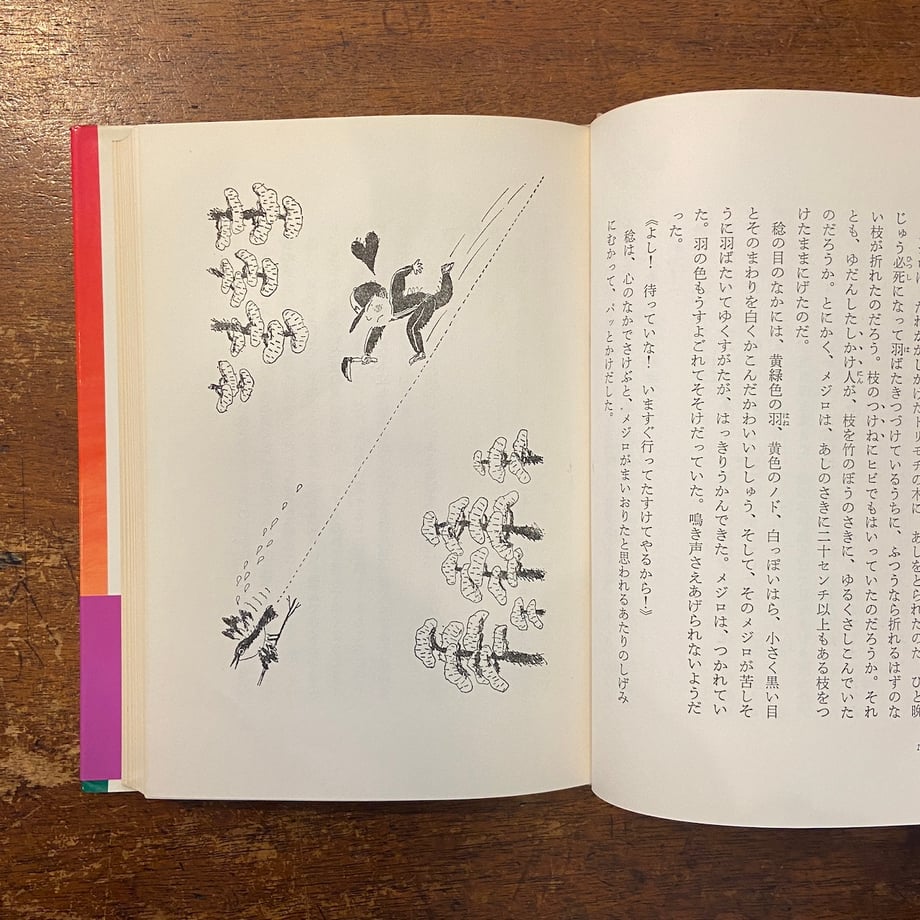 じゅう必死になって羽ばたきつづけているうちに、ふつうなら折れるはずのな
い枝が折れたのだろう。枝のつけねにヒビでもはいっていたのだろうか。それ
とも、ゆだんしたしかけ人が、枝を竹のぼうのさきに、ゆるくさしこんでいた
のだろうか。とにかく、メジロは、あしのさきに二十センチ以上もある枝をつ
けたままにげたのだ。
稔の目のなかには、黄緑色の羽、黄色のノド、白っぽいはら、小さく黒い目
とそのまわりを白くかこんだかわいいししゅう、そして、そのメジロが苦しそ
うに羽ばたいてゆくすがたが、はっきりうかんできた。メジロは、つかれてい
た。羽の色もうすよごれてそそけだっていた。鳴き声さえあげられないようだ
った。
《よし！　待っていな！　いますぐ行ってたすけてやるから！》
稔は、心のなかでさけぶと、メジロがまいおりたと思われるあたりのしげみ
にむかって、パッとかけだした。